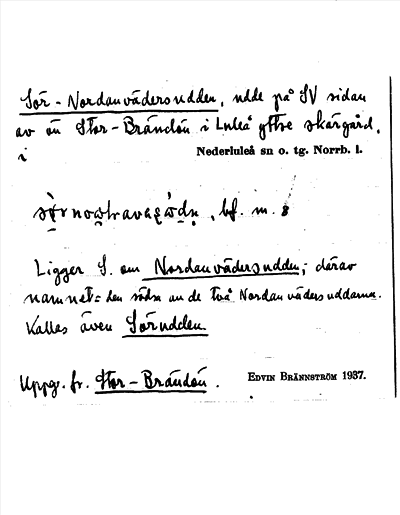 Sör-Nordanvädersudden, udde på SV sidan
av ön Stor-Brändön i Luleå yttre skärgård,
i Nederluleå sn o. tg. Norrb. l.
bf. m. 8
Ligger S. om Nordanvädersudden; därav
namnet = den södra av de två Nordanväders uddarna.
Kallas även Sörudden.
Uppg. fr. Stor-Brändön. EDVIN BRÄNNSTRÖM 1937.